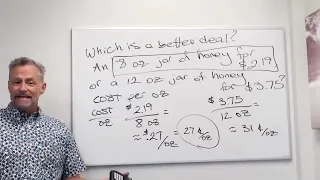 Which is a better deal?
An 8 oz jar of honey for $2.19
or a 12 oz jar of honey
for $3.75?
cost per oz
cost/oz $2.19/8 oz = $3.75/12 oz =
≈ $.27/oz = 27 ¢/oz ≈ 31 ¢/oz